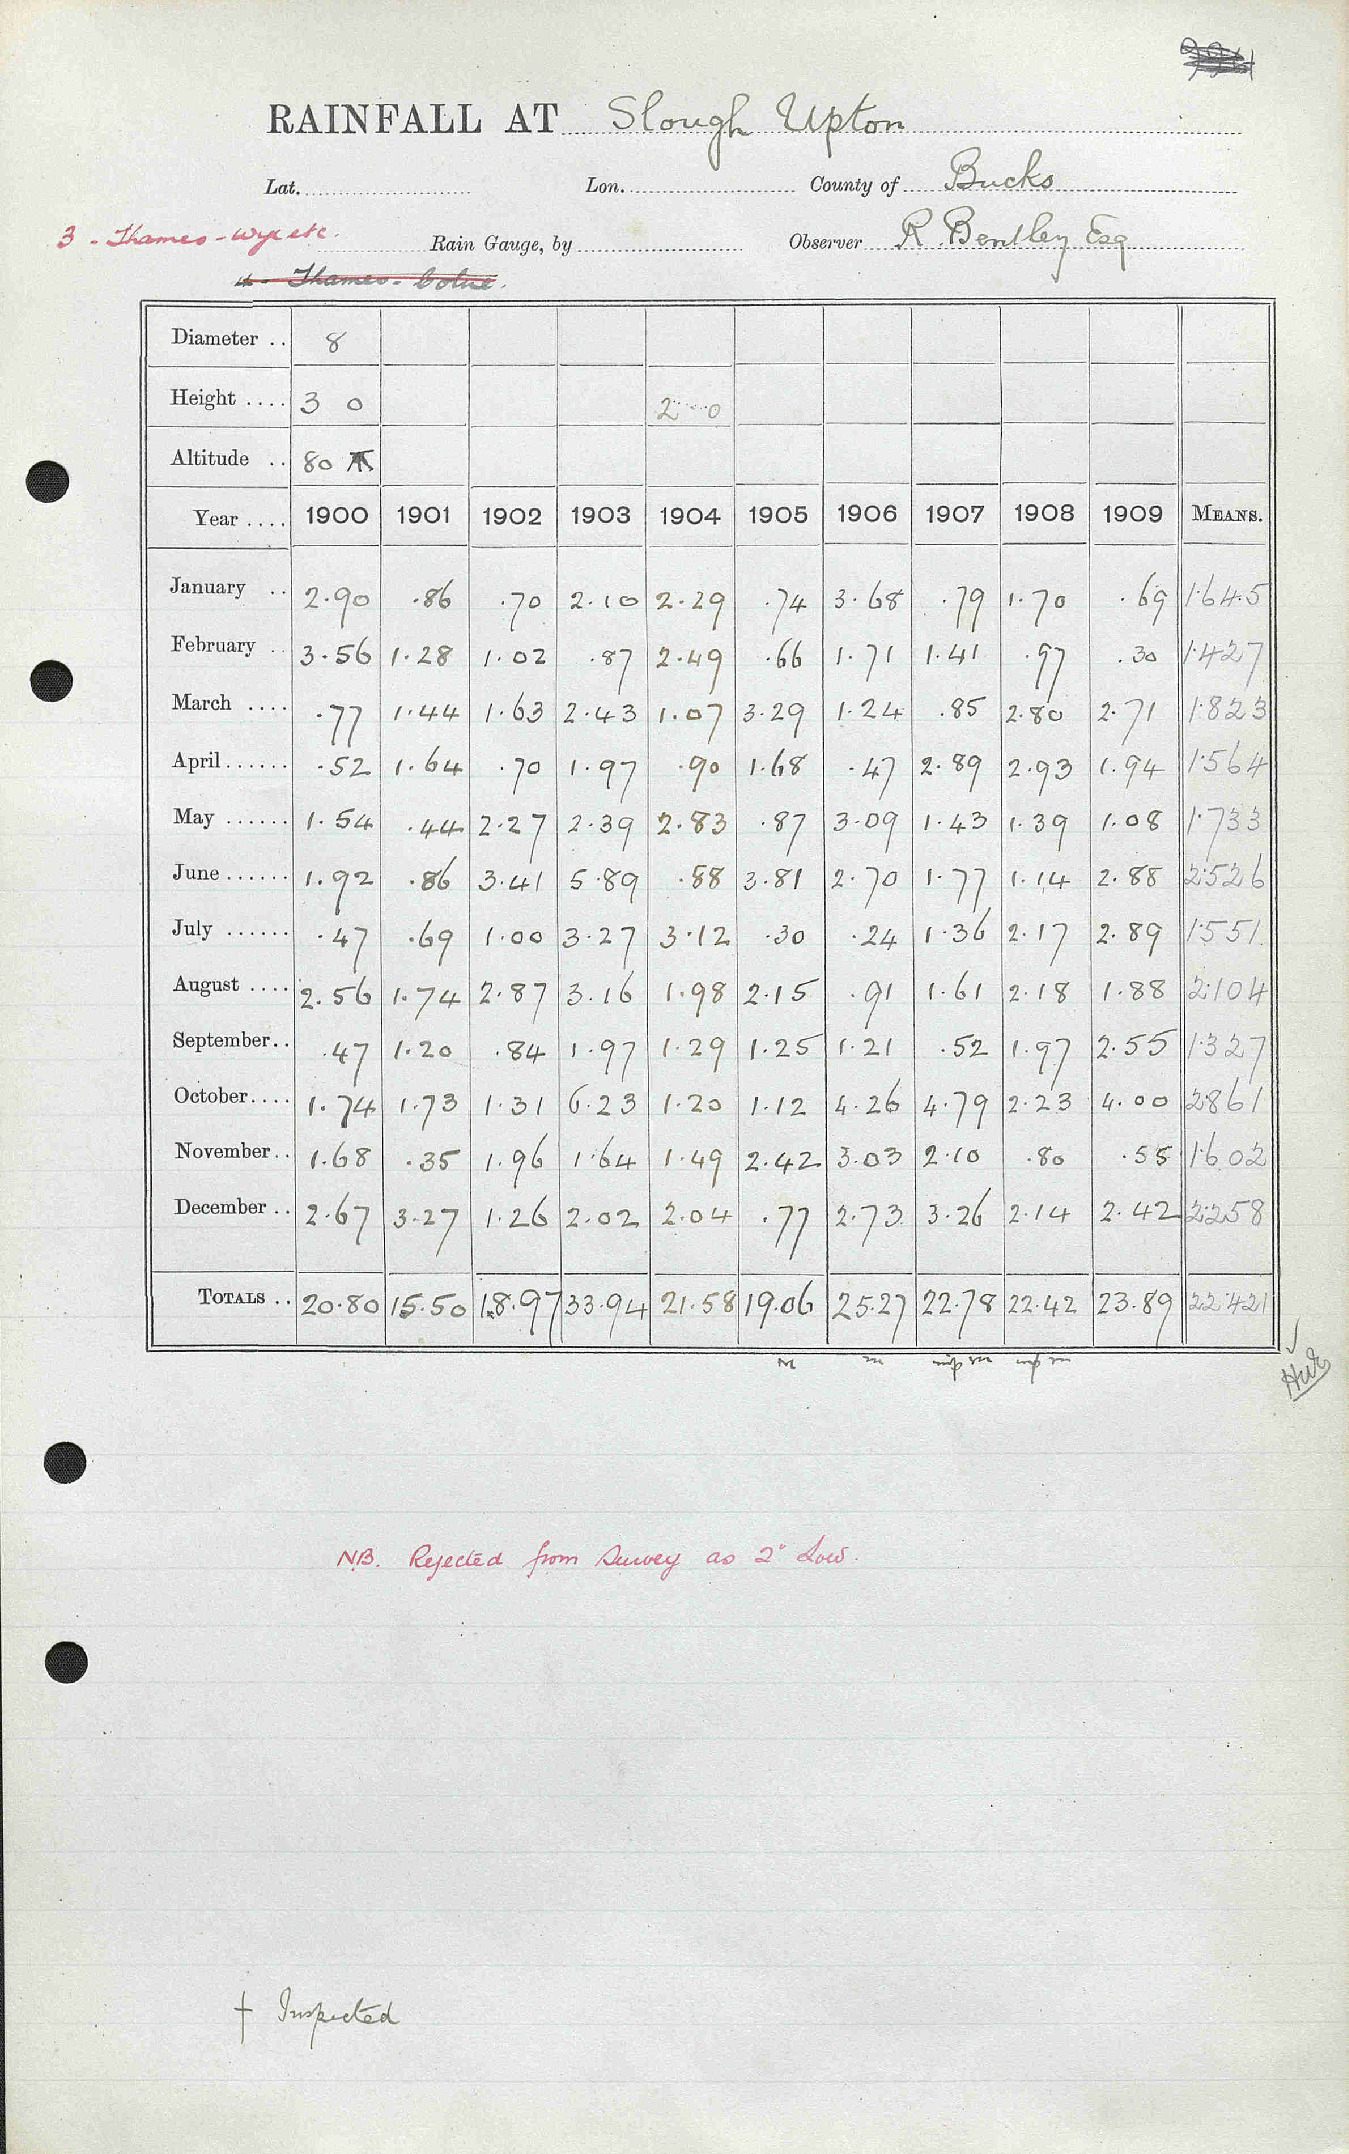 RAINFALL AT Slough Upton
Lat. Lon. County of Bucks
3 - Thames - Wye etc. Rain Gauge, by Observer R Bentley Esq
4 - Thames - Colne.
Diameter .. 8
Height .... 3 0 2 0
Altitude .. 80
Year .... 1900 1901 1902 1903 1904 1905 1906 1907 1908 1909 MEANS.
January .. 2.90 .86 .70 2.10 2.29 .74 3.68 .79 1.70 .69 1.645
February .. 3.56 1.28 1.02 .87 2.49 .66 1.71 1.41 .97 .30 1.427
March .... .77 1.44 1.63 2.43 1.07 3.29 1.24 .85 2.80 2.71 1.823
April ...... .52 1.64 .70 1.97 .90 1.68 .47 2.89 2.93 1.94 1.564
May ...... 1.54 .44 2.27 2.39 2.83 .87 3.09 1.43 1.39 1.08 1.733
June ...... 1.92 .86 3.41 5.89 .88 3.81 2.70 1.77 1.14 2.88 2.526
July ...... .47 .69 1.00 3.27 3.12 .30 .24 1.36 2.17 2.89 1.551
August .... 2.56 1.74 2.87 3.16 1.98 2.15 .91 1.61 2.18 1.88 2.104
September .. .47 1.20 .84 1.97 1.29 1.25 1.21 .52 1.97 2.55 1.327
October .... 1.74 1.73 1.31 6.23 1.20 1.12 4.26 4.79 2.23 4.00 2.861
November .. 1.68 .35 1.96 1.64 1.49 2.42 3.03 2.10 .80 .55 1.602
December .. 2.67 3.27 1.26 2.02 2.04 .77 2.73 3.26 2.14 2.42 2.258
TOTALS .. 20.80 15.50 18.97 33.94 21.58 19.06 25.27 22.78 22.42 23.89 22.421
NB. Rejected from Survey as 2" Low.
† Inspected